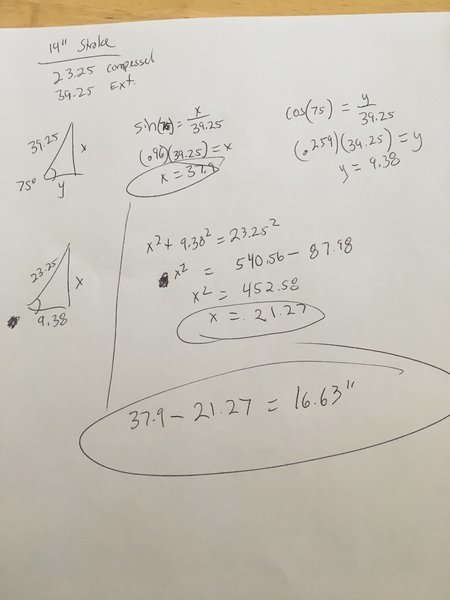 14" Stroke
23.25 compressed
39.25 Ext.
39.25
x
75°
y
sin(75) = x/39.25
(.96)(39.25) = x
x = 37.9
cos(75) = y/39.25
(.259)(39.25) = y
y = 9.38
23.25
x
9.38
x² + 9.38² = 23.25²
x² = 540.56 - 87.98
x² = 452.58
x = 21.27
37.9 - 21.27 = 16.63"